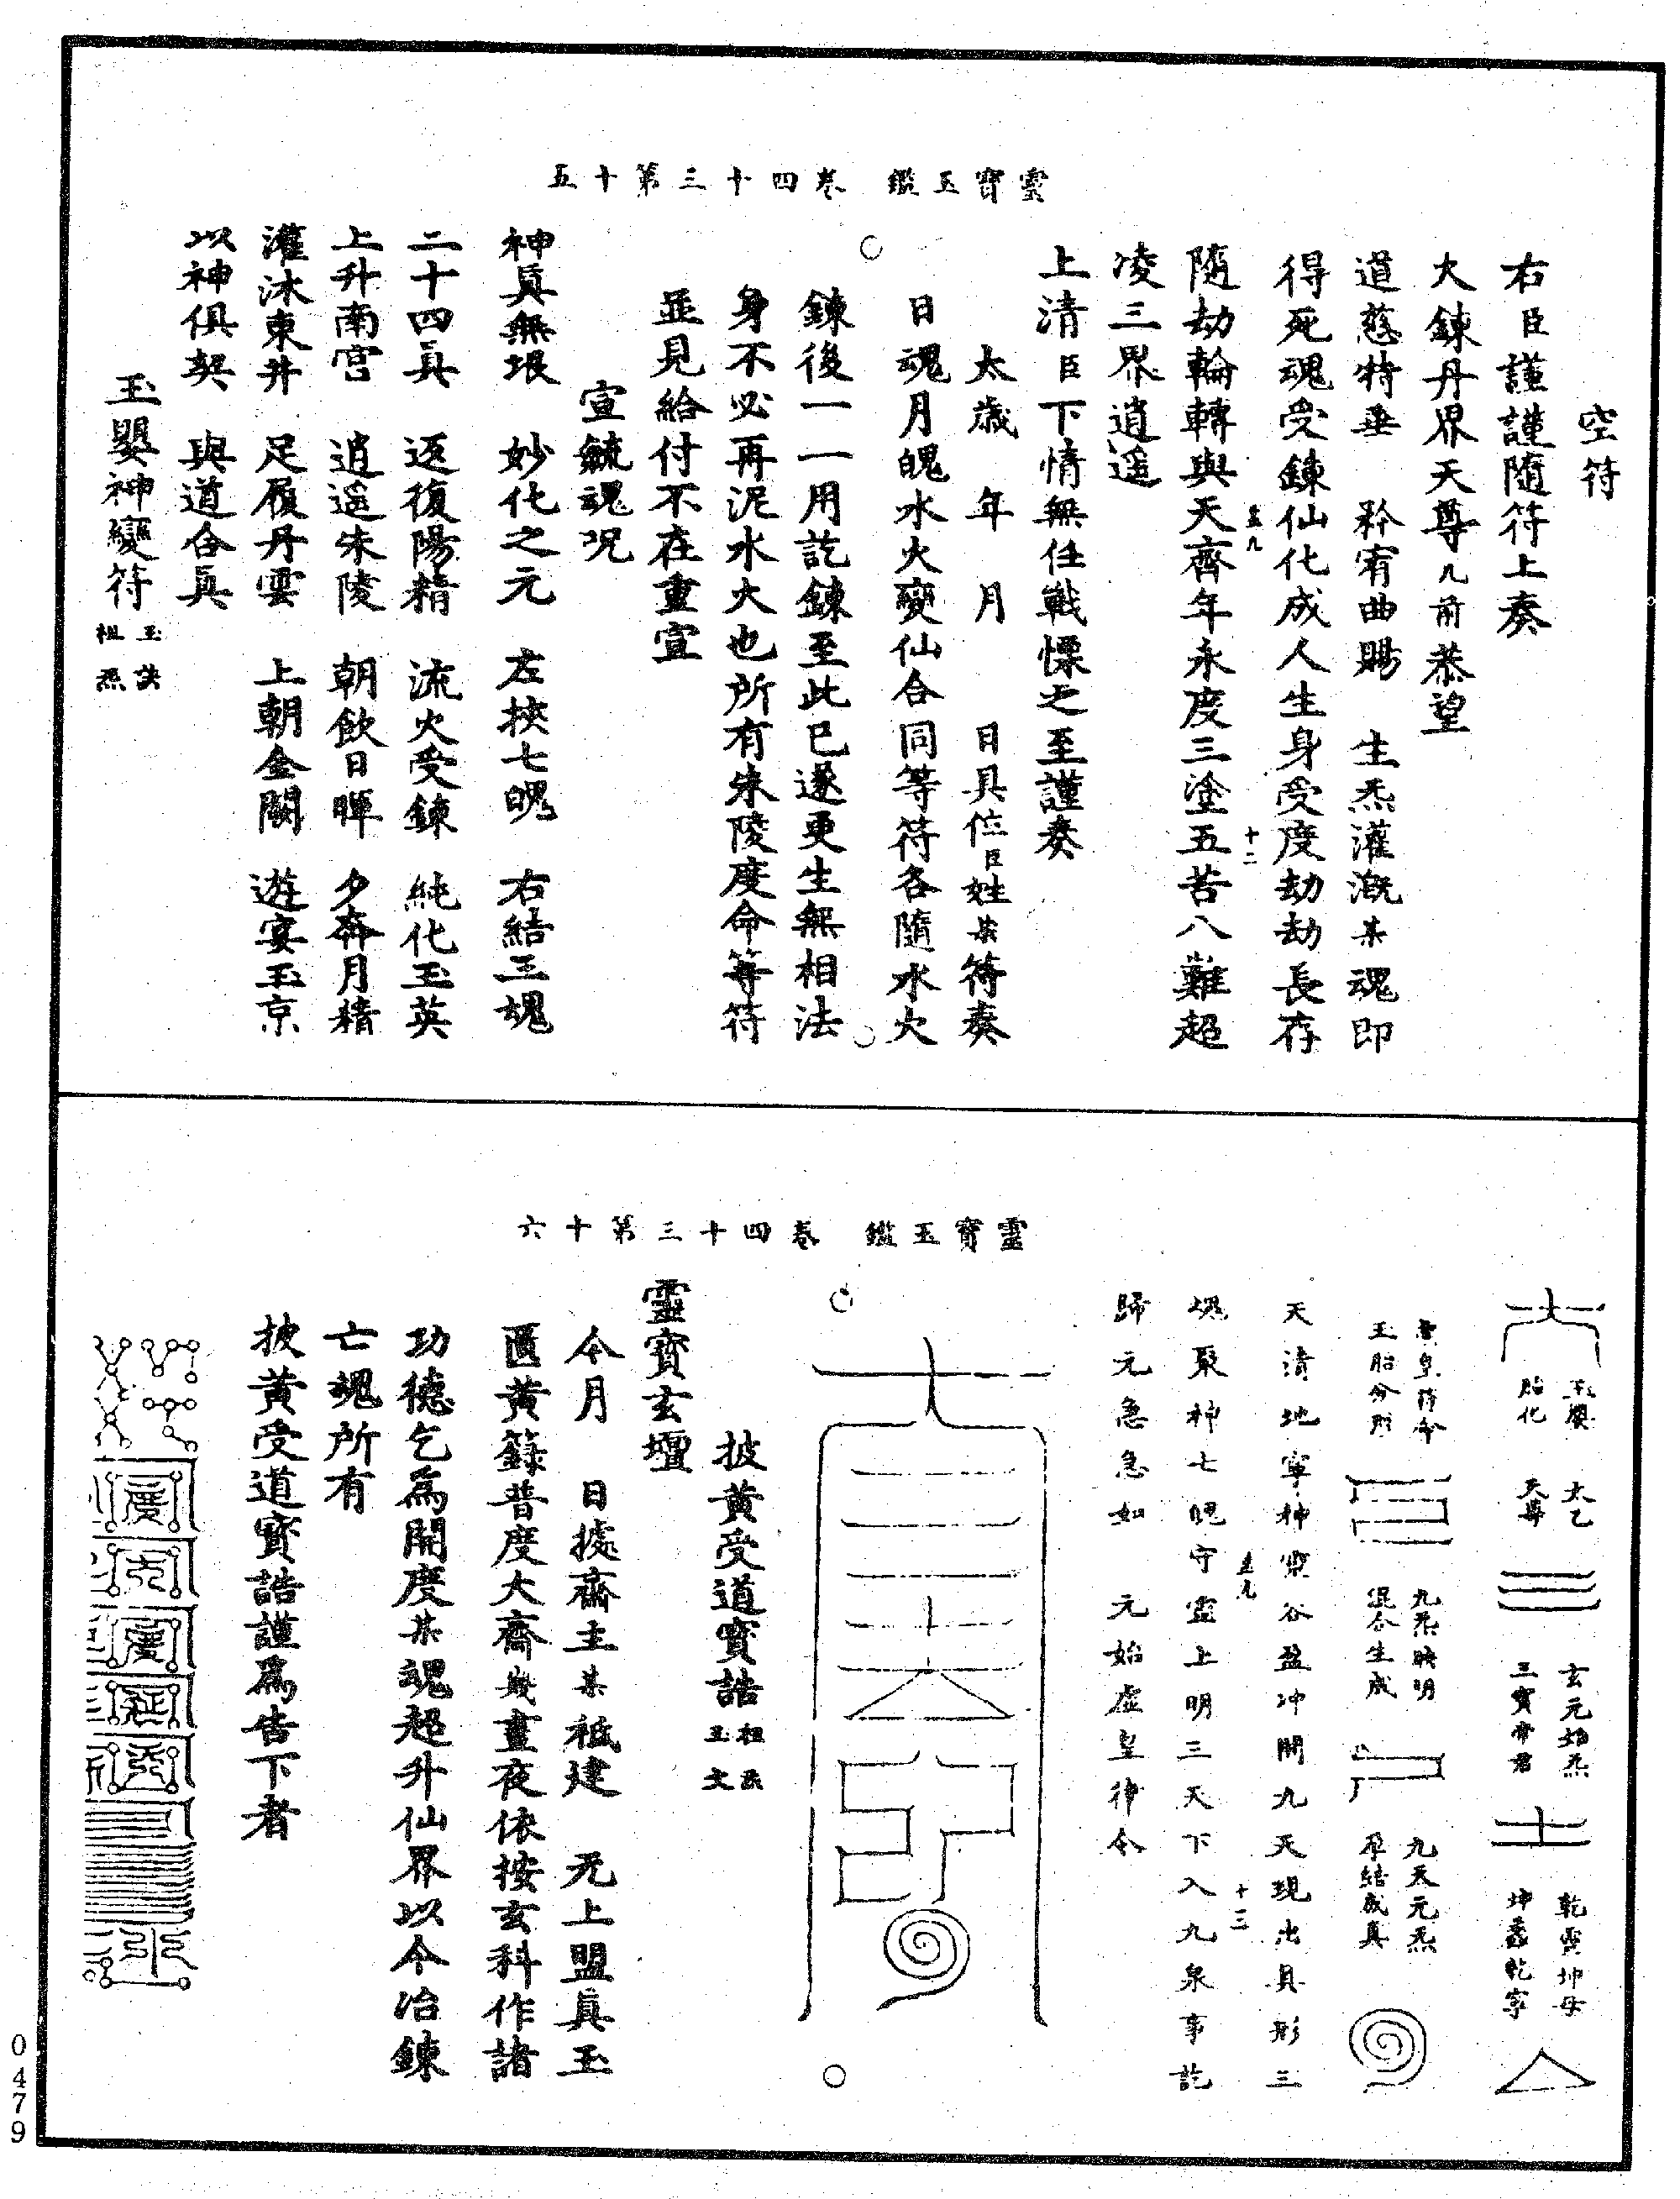 靈寶玉鑑 卷四十三第十五
空符
右臣謹謹隨符上奏
大鍊丹界天尊几前恭望
道慈特垂 矜宥曲賜 生炁灌溉某魂即
得死魂受鍊仙化成人生身受度劫劫長存
隨劫輪轉與天齊年永度三塗五苦八難超
孟九 十二
凌三界逍遥
上清臣下情無任戰慄之至謹奏
太歲 年 月 日具位臣姓某符奏
日魂月魄水火變仙合同等符各隨水火
鍊後一一用訖鍊至此已遂更生無相法
身不必再泥水火也所有朱陵度命等符
並見給付不在重宣
宣毓魂呪
神眞無垠 妙化之元 左挾七魄 右結三魂
二十四眞 返復陽精 流火受鍊 純化玉英
上升南宫 逍遥朱陵 朝飲日暉 夕奔月精
灌沐東井 足履丹雲 上朝金闕 遊宴玉京
以神俱契 與道合眞
玉嬰神變符 玉訣 祖炁
靈寶玉鑑 卷四十三第十六
玉嬰 胎化 太乙 天尊 玄元始炁 三寶帝君 乾靈坤母 坤 乾寧
皇符命 玉胎分形 九炁映明 混合生成 九天元炁 孕結成真
天清地寧神靈谷盈冲開九天現出具形三
孟九 十三
魂聚神七魄守靈上明三天下入九泉事訖
歸元急急如 元始虛皇律令
披黄受道寶誥 祖炁 玉文
靈寶玄壇
今月 日據齋主某祗建 无上盟眞玉
匱黄籙普度大齋幾晝夜依按玄科作諸
功德乞爲開度某魂超升仙界以今冶鍊
亡魂所有
披黄受道寶誥謹爲告下者
0479